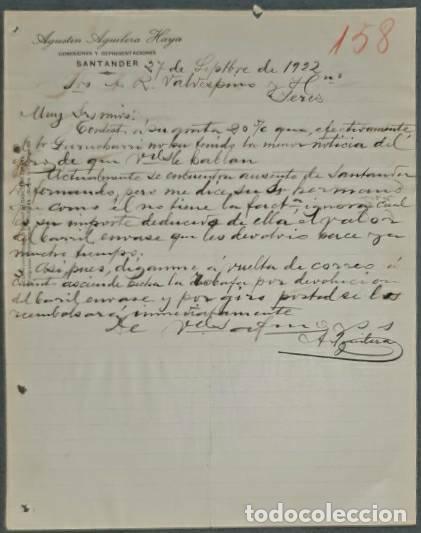 Agustín Aguilera Haya
COMISIONES Y REPRESENTACIONES
SANTANDER
158
27 de Septbre de 1922
Srs A. R. Valdespino y Hno
Jerez
Muy Sres míos:
Contest. á su grata 20 que, efectivamente
no ha tenido la menor noticia del
de que Vds le hablan
Actualmente se encuentra ausente de Santander
Fernando, pero me dice su hermano
que como él no tiene la fact ignora cual
es su importe deducido de ella el valor
del barril envase que les devolvió hace ya
mucho tiempo.
Así, pues, díganme á vuelta de correo á
cuanto asciende hecha la rebaja por devolución
del barril envase y por giro postal se les
reembolsará inmediatamente
De Vds afmo s s
A. Aguilera
todocoleccion.net